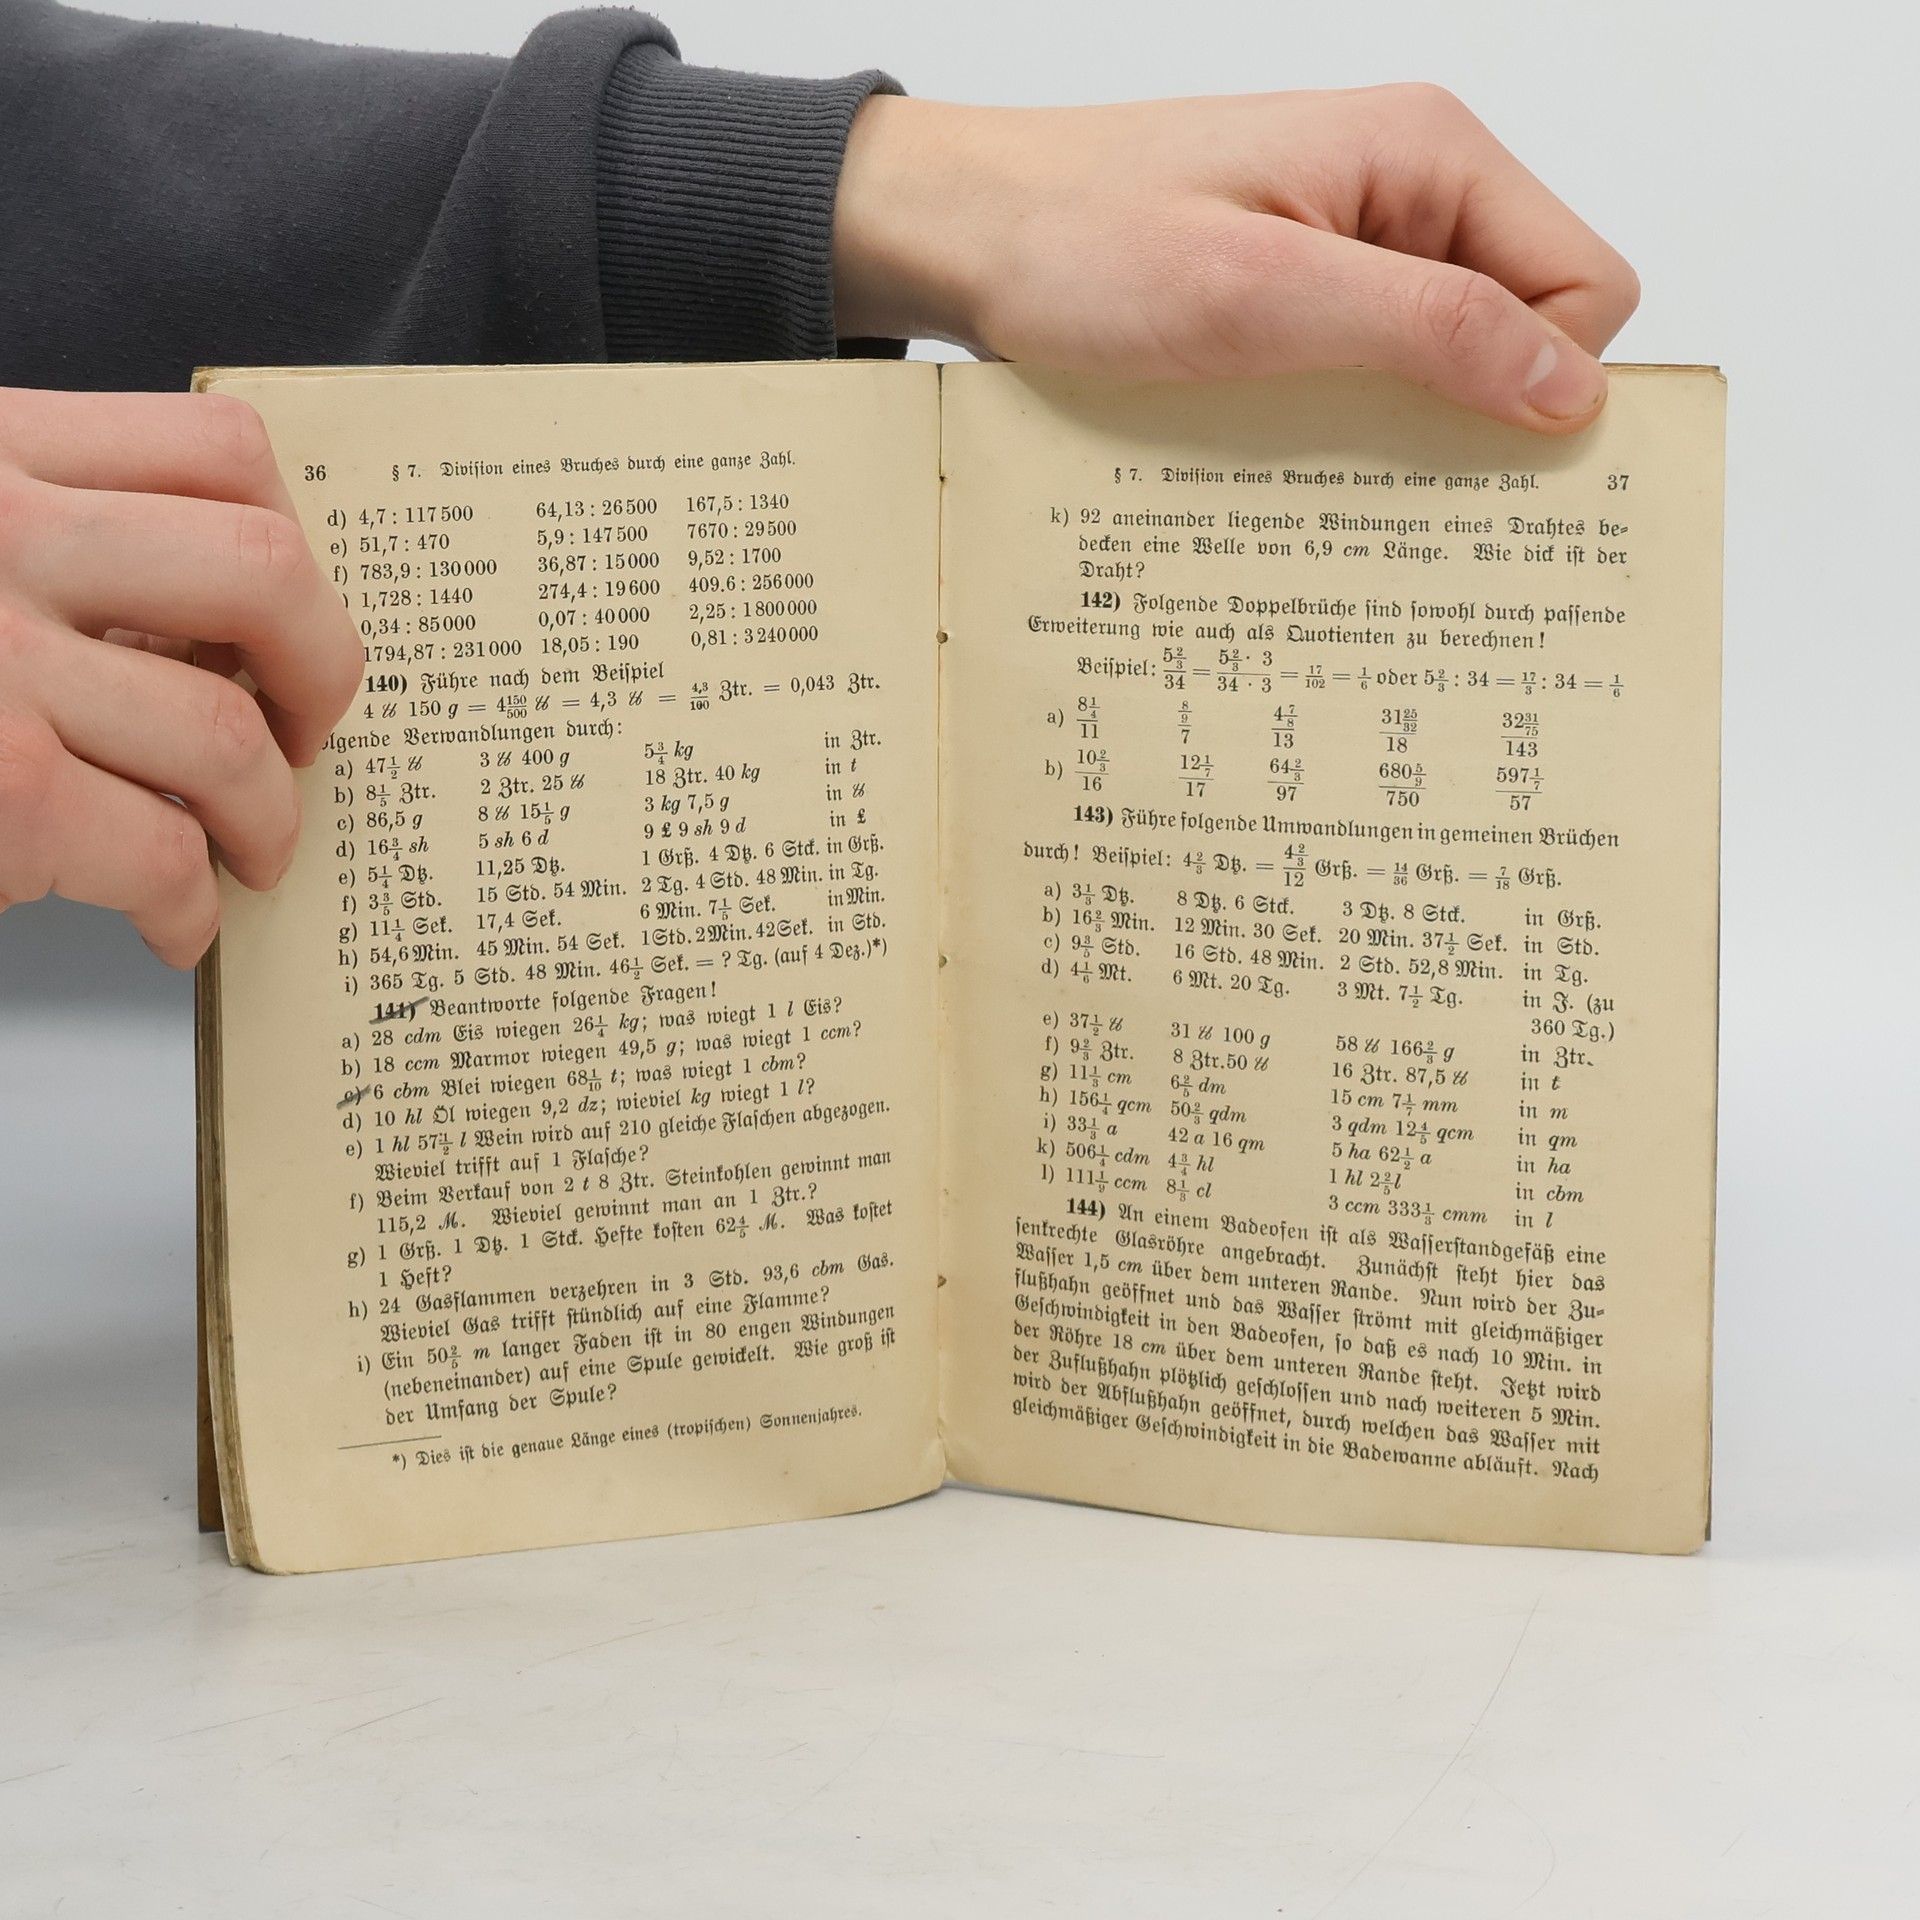 36 § 7. Division eines Bruches durch eine ganze Zahl.
d) 4,7 : 117500 64,13 : 26500 167,5 : 1340
e) 51,7 : 470 5,9 : 147500 7670 : 29500
f) 783,9 : 130000 36,87 : 15000 9,52 : 1700
) 1,728 : 1440 274,4 : 19600 409.6 : 256000
0,34 : 85000 0,07 : 40000 2,25 : 1800000
1794,87 : 231000 18,05 : 190 0,81 : 3240000
140) Führe nach dem Beispiel
4 ℔ 150 g = 4 150/500 ℔ = 4,3 ℔ = 4,3/100 Ztr. = 0,043 Ztr.
olgende Verwandlungen durch:
a) 47 1/2 ℔ 3 ℔ 400 g 5 3/4 kg in Ztr.
b) 8 1/5 Ztr. 2 Ztr. 25 ℔ 18 Ztr. 40 kg in t
c) 86,5 g 8 ℔ 15 1/5 g 3 kg 7,5 g in ℔
d) 16 3/4 sh 5 sh 6 d 9 £ 9 sh 9 d in £
e) 5 1/4 Dtz. 11,25 Dtz. 1 Grß. 4 Dtz. 6 Stck. in Grß.
f) 3 3/5 Std. 15 Std. 54 Min. 2 Tg. 4 Std. 48 Min. in Tg.
g) 11 1/4 Sek. 17,4 Sek. 6 Min. 7 1/5 Sek. in Min.
h) 54,6 Min. 45 Min. 54 Sek. 1 Std. 2 Min. 42 Sek. in Std.
i) 365 Tg. 5 Std. 48 Min. 46 1/2 Sek. = ? Tg. (auf 4 Dez.)*)
141) Beantworte folgende Fragen!
a) 28 cdm Eis wiegen 26 1/4 kg; was wiegt 1 l Eis?
b) 18 ccm Marmor wiegen 49,5 g; was wiegt 1 ccm?
c) 6 cbm Blei wiegen 68 1/10 t; was wiegt 1 cbm?
d) 10 hl Öl wiegen 9,2 dz; wieviel kg wiegt 1 l?
e) 1 hl 57 1/2 l Wein wird auf 210 gleiche Flaschen abgezogen.
Wieviel trifft auf 1 Flasche?
f) Beim Verkauf von 2 t 8 Ztr. Steinkohlen gewinnt man
115,2 M. Wieviel gewinnt man an 1 Ztr.?
g) 1 Grß. 1 Dtz. 1 Stck. Hefte kosten 62 4/5 M. Was kostet
1 Heft?
h) 24 Gasflammen verzehren in 3 Std. 93,6 cbm Gas.
Wieviel Gas trifft stündlich auf eine Flamme?
i) Ein 50 2/5 m langer Faden ist in 80 engen Windungen
(nebeneinander) auf eine Spule gewickelt. Wie groß ist
der Umfang der Spule?
*) Dies ist die genaue Länge eines (tropischen) Sonnenjahres.
§ 7. Division eines Bruches durch eine ganze Zahl. 37
k) 92 aneinander liegende Windungen eines Drahtes be-
decken eine Welle von 6,9 cm Länge. Wie dick ist der
Draht?
142) Folgende Doppelbrüche sind sowohl durch passende
Erweiterung wie auch als Quotienten zu berechnen!
Beispiel: 5 2/3 / 34 = 5 2/3 · 3 / 34 · 3 = 17/102 = 1/6 oder 5 2/3 : 34 = 17/3 : 34 = 1/6
a) 8 1/4 / 11 8/9 / 7 4 7/8 / 13 31 25/32 / 18 32 31/75 / 143
b) 10 2/3 / 16 12 1/7 / 17 64 2/3 / 97 680 5/9 / 750 597 1/7 / 57
143) Führe folgende Umwandlungen in gemeinen Brüchen
durch! Beispiel: 4 2/3 Dtz. = 4 2/3 / 12 Grß. = 14/36 Grß. = 7/18 Grß.
a) 3 1/3 Dtz. 8 Dtz. 6 Stck. 3 Dtz. 8 Stck. in Grß.
b) 16 2/3 Min. 12 Min. 30 Sek. 20 Min. 37 1/2 Sek. in Std.
c) 9 3/5 Std. 16 Std. 48 Min. 2 Std. 52,8 Min. in Tg.
d) 4 1/6 Mt. 6 Mt. 20 Tg. 3 Mt. 7 1/2 Tg. in J. (zu
360 Tg.)
e) 37 1/2 ℔ 31 ℔ 100 g 58 ℔ 166 2/3 g in Ztr.
f) 9 2/3 Ztr. 8 Ztr. 50 ℔ 16 Ztr. 87,5 ℔ in t
g) 11 1/3 cm 6 2/5 dm 15 cm 7 1/7 mm in m
h) 156 1/4 qcm 50 2/3 qdm 3 qdm 12 4/5 qcm in qm
i) 33 1/3 a 42 a 16 qm 5 ha 62 1/2 a in ha
k) 506 1/4 cdm 4 3/4 hl 1 hl 2 2/5 l in cbm
l) 111 1/9 ccm 8 1/3 cl 3 ccm 333 1/3 cmm in l
144) An einem Badeofen ist als Wasserstandgefäß eine
senkrechte Glasröhre angebracht. Zunächst steht hier das
Wasser 1,5 cm über dem unteren Rande. Nun wird der Zu-
flußhahn geöffnet und das Wasser strömt mit gleichmäßiger
Geschwindigkeit in den Badeofen, so daß es nach 10 Min. in
der Röhre 18 cm über dem unteren Rande steht. Jetzt wird
der Zuflußhahn plötzlich geschlossen und nach weiteren 5 Min.
wird der Abflußhahn geöffnet, durch welchen das Wasser mit
gleichmäßiger Geschwindigkeit in die Badewanne abläuft. Nach